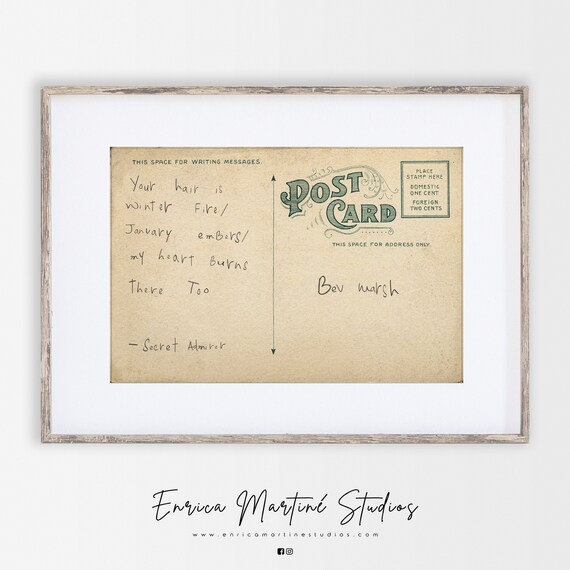 THIS SPACE FOR WRITING MESSAGES.
Your hair is
winter Fire/
January embers/
my heart Burns
There Too
— Secret Admirer
POST
CARD
PLACE
STAMP HERE
DOMESTIC
ONE CENT
FOREIGN
TWO CENTS
THIS SPACE FOR ADDRESS ONLY.
Bev marsh
Enrica Martiné Studios
www.enricamartinestudios.com